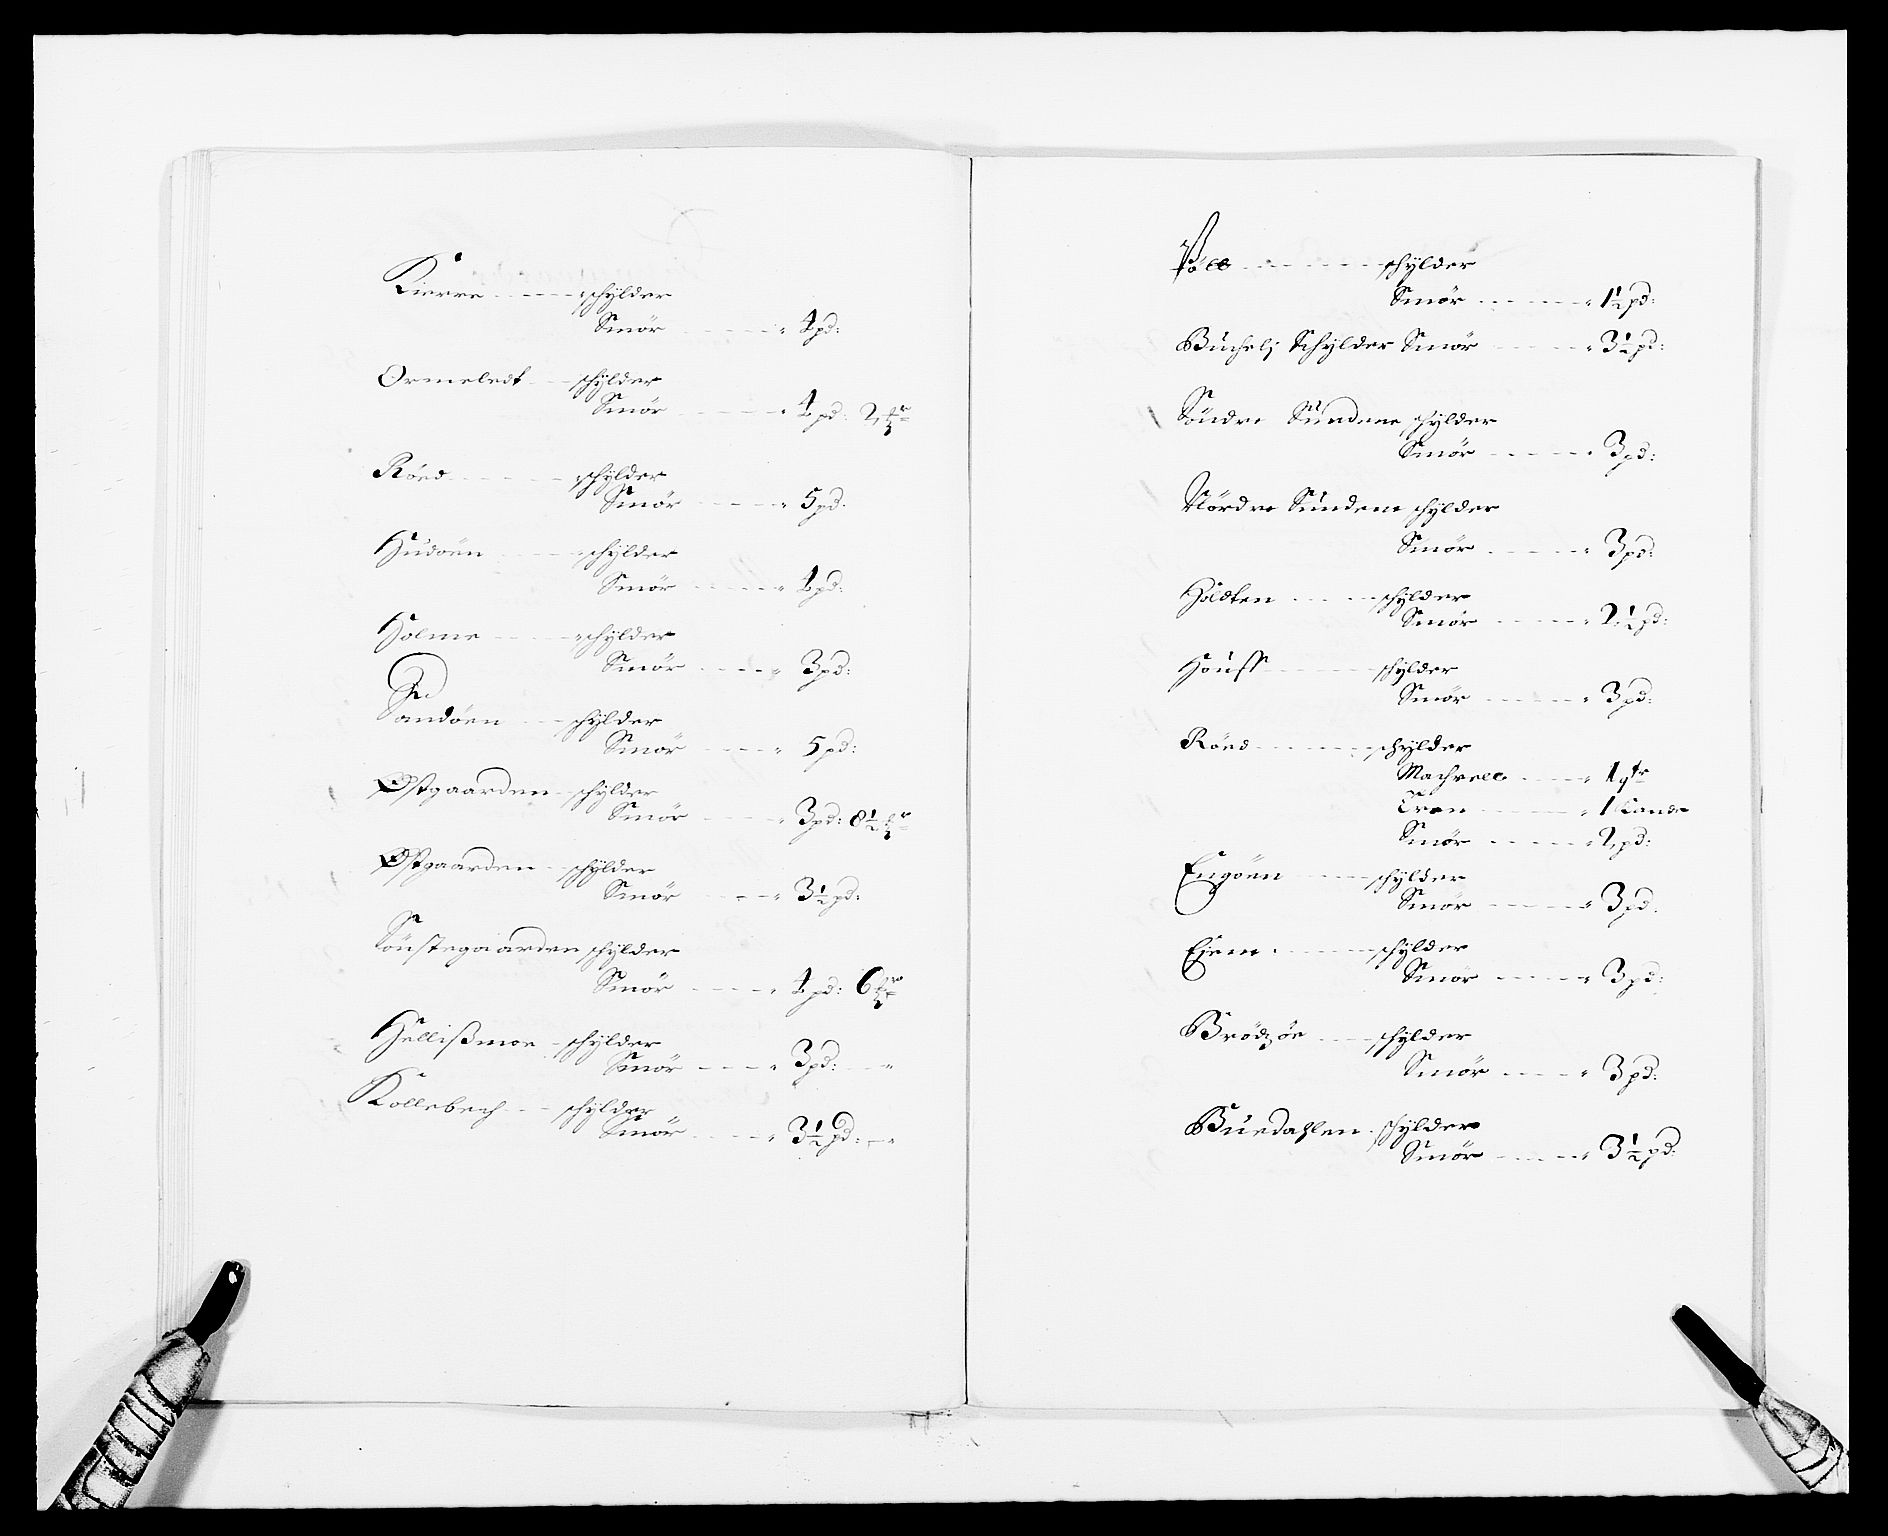 Kierre - - - - schylder
Smör - - - - - 4 pd:
Ormeledt - - schylder
Smör - - - - - 4 pd: 2
Röed - - - - - schylder
Smör - - - - 5 pd.
Hudöen - - - schylder
Smör - - - - - 4 pd:
Holme - - - - schylder
Smör - - - - 3 pd:
Sandöen - - - schylder
Smör - - - - 5 pd:
Østgaarden - schylder
Smör - - - - 3 pd: 8½
Østgaarden - schylder
Smör - - - - 3½ pd:
Sönstegaarden schylder
Smör - - - - 4 pd: 6
Hellißmoe - schylder
Smör - - - - 3 pd: - -
Kollebech - - schylder
Smör - - - - 3½ pd: - -
schylder
Smör - - - - - 1½ pd:
Buchelj Schylder Smör - - - - 3½ pd:
Söndre Sundene schylder
Smör - - - - - 3 pd:
Nördre Sundene schylder
Smör - - - - - 3 pd:
Holdten - - - schylder
Smör - - - - - 2½ pd:
Houff - - - - - schylder
Smör - - - - - 3 pd:
Röed - - - - - - schylder
Machrell - - - - 1 qtr
Tran - - - - - 1 Kande
Smör - - - - - 2 pd:
Engöen - - - - schylder
Smör - - - - - 3 pd.
Ejene - - - - - schylder
Smör - - - - - 3 pd:
Brödzöe - - - schylder
Smör - - - - 3 pd:
Buedahlen - schylder
Smör - - - - - 3½ pd: